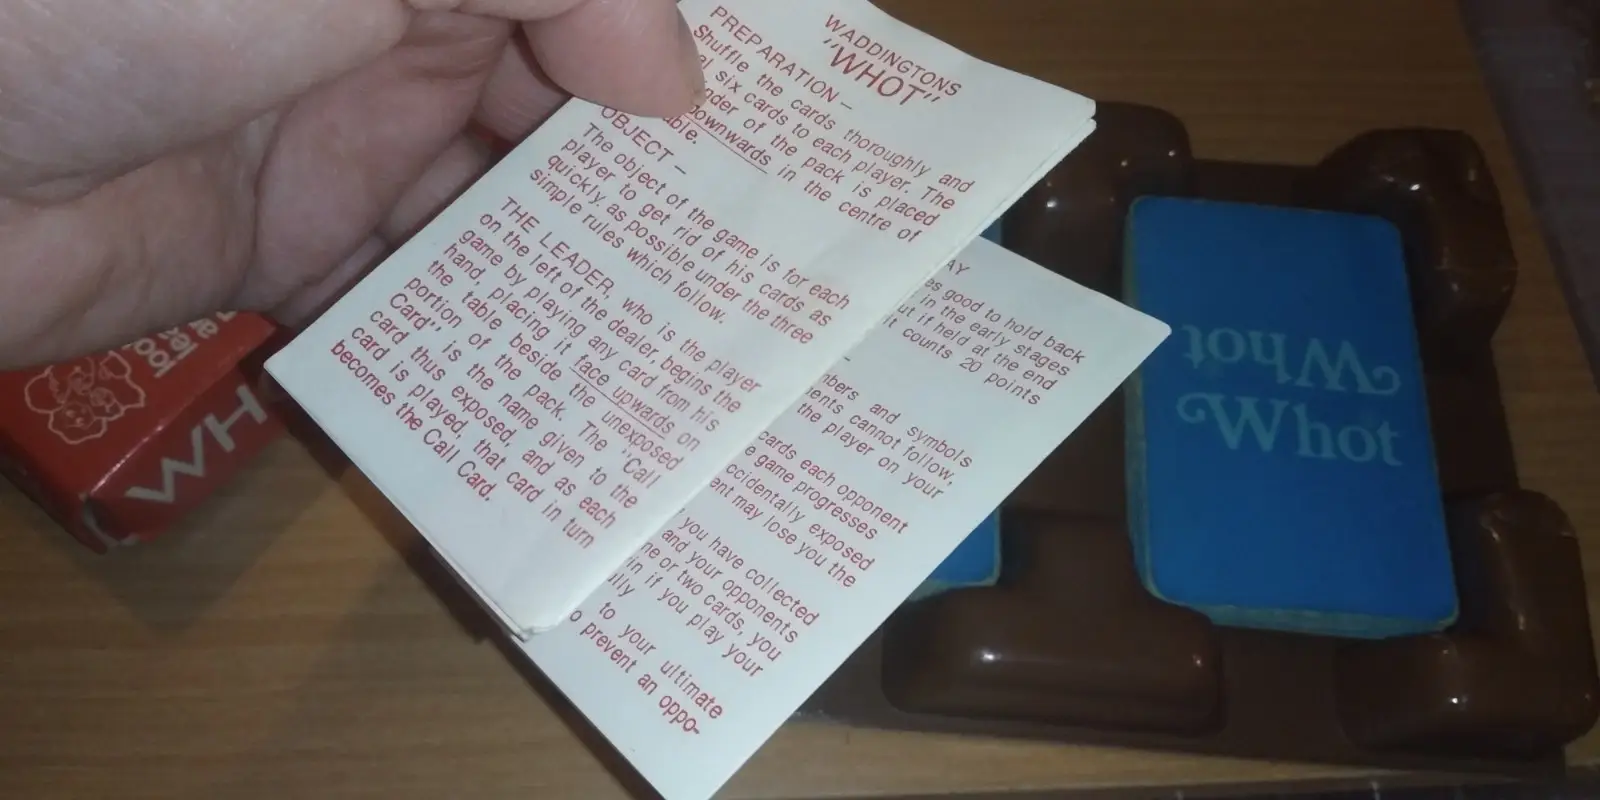 WADDINGTONS
"WHOT"
PREPARATION —
Shuffle the cards thoroughly and
six cards to each player. The
of the pack is placed
downwards in the centre of
OBJECT —
The object of the game is for each
player to get rid of his cards as
quickly. as possible under the three
simple rules which follow.
THE LEADER, who is the player
on the left of the dealer, begins the
game by playing any card from his
hand, placing it face upwards on
the table beside the unexposed
portion of the pack. The "Call
Card" is the name given to the
card thus exposed, and as each
card is played, that card in turn
becomes the Call Card.
good to hold back
in the early stages
if held at the end
counts 20 points
and symbols
cannot follow,
the player on your
cards each opponent
game progresses
exposed
may lose you the
you have collected
and your opponents
or two cards, you
in if you play your
to your ultimate
prevent an oppo-
Whot
Whot
WH